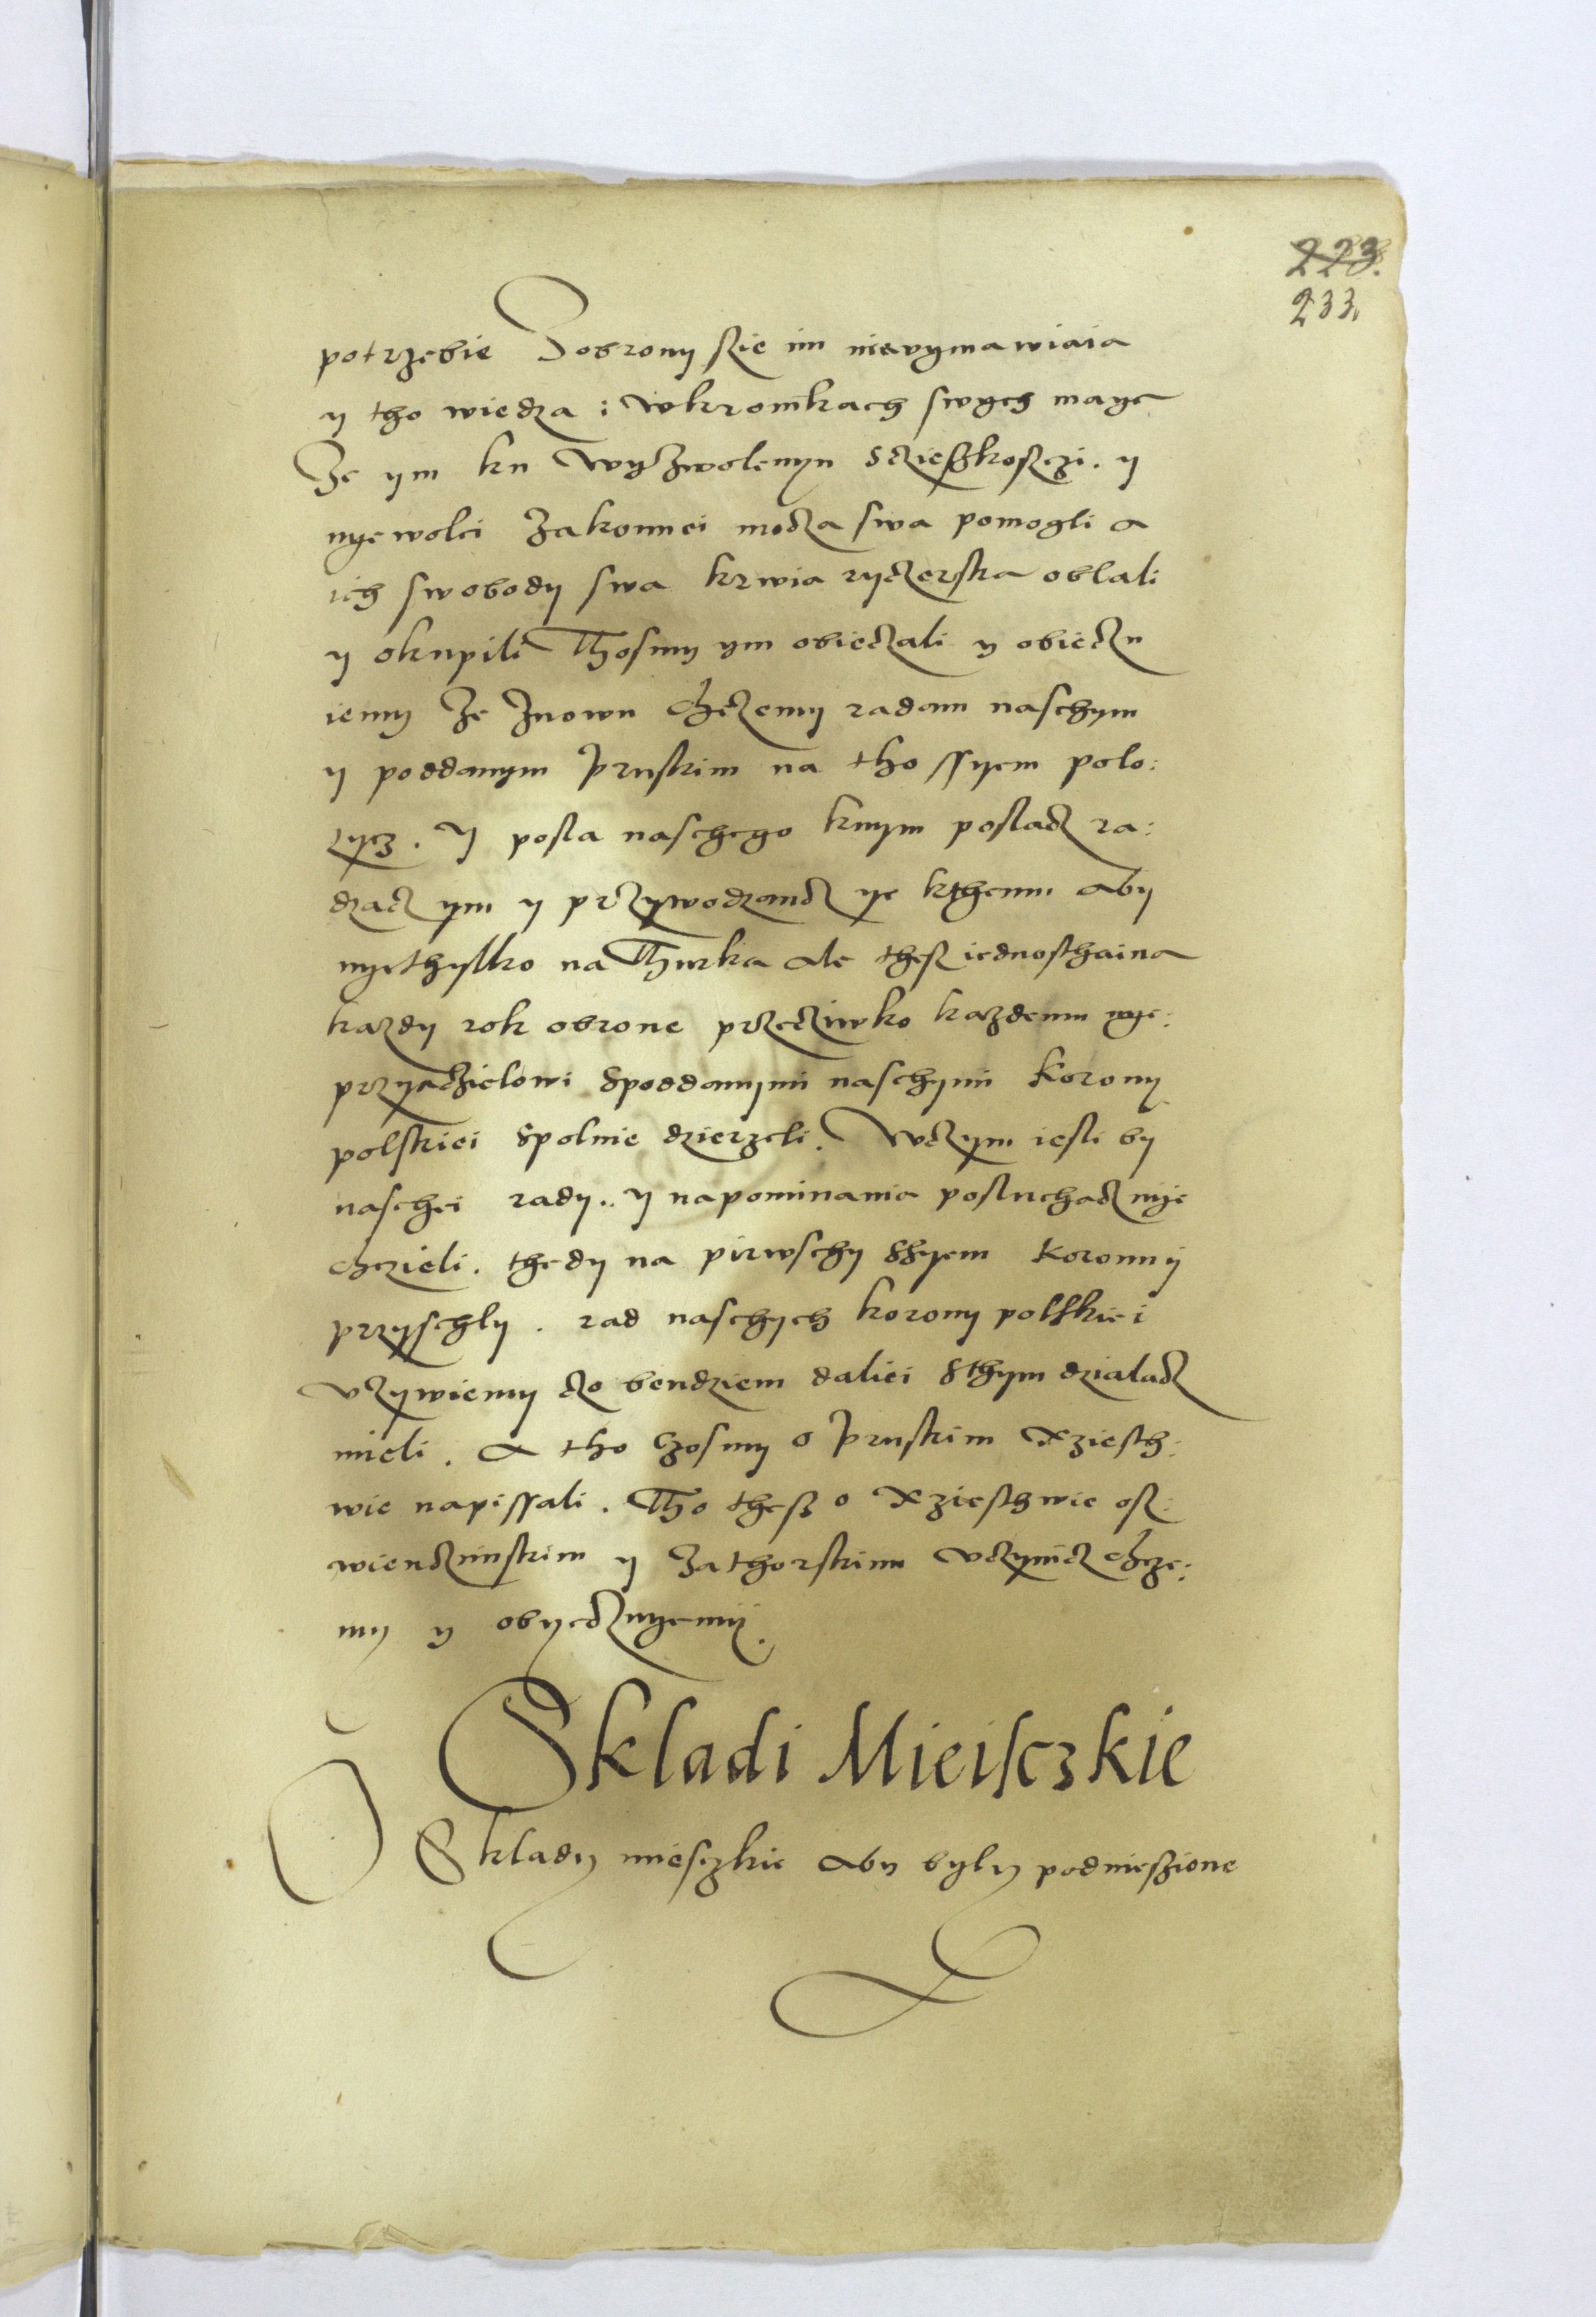 223.
233.
potrzebie Dobrony szie im nievymawiaia
y tho wiedza : wkronikach swych maye
Ze ym ku wyzwolenyu sczieszkosczi . y
nyewolei zakonnei moczą swa pomogli a
ich swobody swa krwia ryczerska oblali
y okupili Thosmy ym obieczali y obieczu
iemy ze znowu chczemy radam naschym
y poddanym pruskim na tho ssyem polo:
zycz . Y posla naschego knym poslacz ra:
dzacz ym y przywodzancz ye kthemu aby
nyethylko na Thurka ale thesz iednosthaina
kazdy rok obrone przecziwko kazdemu nye:
przyaczielowi spoddanymi naschymi korony
polskiei spolnie dzierzeli . Wczym iesli by
naschei rady .. y napominania posluchacz nye
chczieli . thedy na pirwschy ssyem koronny
przyschly . rad naschych korony polskiei
vzywiemy czo bendziem daliei sthym dzialacz
mieli . A tho czosmy o pruskim xziesth:
wie napissali . Tho thesz o xziesthwie osz:
wienczimskim y zathorskim vczynicz chcze:
my y obyeczuyemy .
Skladi Mieisczkie
Sklady miesczkie aby byly podnieszione